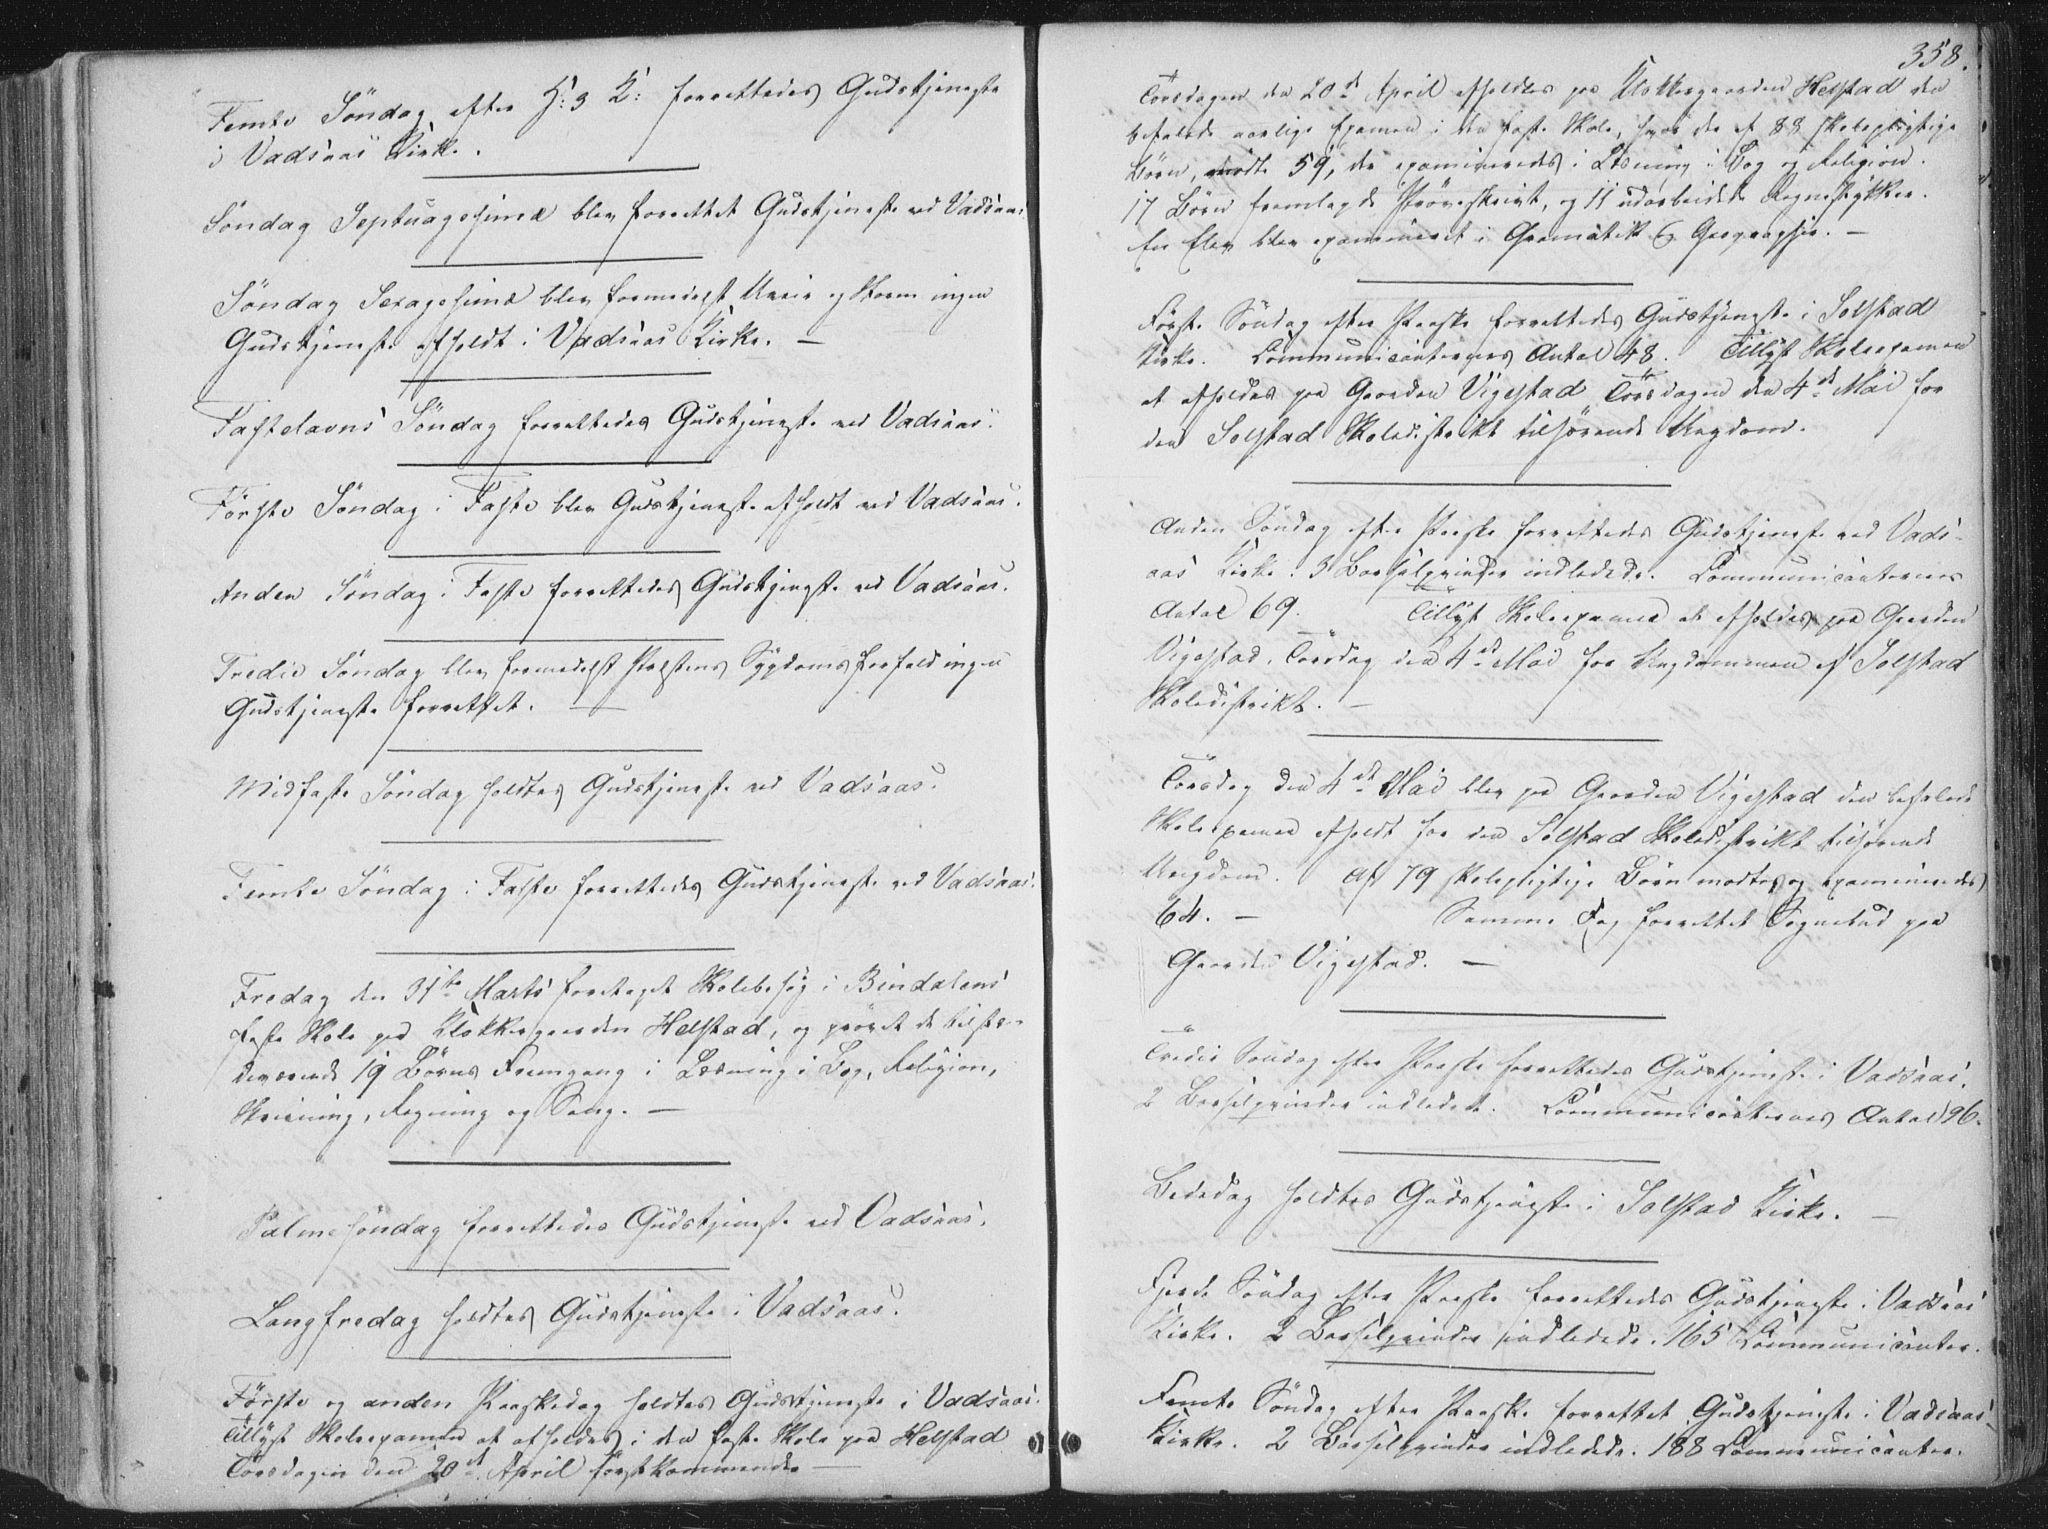 Femte Søndag efter H: 3 K: forrettedes Gudstjeneste
i Vadsaas Kirke.
Søndag Septuagesima blev forrettet Gudstjeneste ved Vadsaas
Søndag Sexagesima blev formedelst Uveir og Storm ingen
Gudstjeneste afholdt i Vadsaas Kirke. —
Fastelavns Søndag forrettedes Gudstjeneste ved Vadsaas.
Første Søndag i Faste blev Gudstjeneste afholdt ved Vadsaas.
Anden Søndag i Faste forrettedes Gudstjeneste ved Vadsaas.
Tredie Søndag blev formedelst Præstens Sygdomsforfald ingen
Gudstjeneste forrettet. —
Midfaste Søndag holdtes Gudstjeneste ved Vadsaas.
Femte Søndag i Faste forrettedes Gudstjeneste ved Vadsaas.
Fredag den 31te Marts foretaget Skolebesøg i Bindalens
faste Skole paa Klokkergaarden Helstad, og prøvet de tilste-
deværende 19 Børns Fremgang i Læsning i Bog, Religion,
Skrivning, Regning og Sang. —
Palmesøndag forrettedes Gudstjeneste ved Vadsaas.
Langfredag holdtes Gudstjeneste i Vadsaas.
Første og anden Paaskedag holdtes Gudstjeneste i Vadsaas.
Tillyst Skoleexamen at afholdes i den faste Skole paa Helstad
Torsdagen den 20de April førstkommende —
358.
Torsdagen den 20de April afholdtes paa Klokkergaarden Helstad den
befalede aarlige Examen i den faste Skole, hvor der af 88 skolepligtige
Børn, mødte 59, der examineredes i Læsning i Bog og Religion.
17 Børn fremlagde Prøveskrivt, og 11 udarbeidede Regnestykker.
En Elev blev examineret i Gramatik & Geographie. —
Første Søndag efter Paaske forrettedes Gudstjeneste i Solstad
Kirke. Communicanternes Antal 48. Tillyst Skoleexamen
at afholdes paa Gaarden Vigestad Torsdagen den 4de Mai for
den Solstad Skoledistrikt tilhørende Ungdom.
Anden Søndag efter Paaske forrettedes Gudstjeneste ved Vads-
aas Kirke. 3 Barselqvinder indledede. Communicanternes
Antal 69. Tillyst Skoleexamen at afholdes paa Gaarden
Vigestad, Torsdag den 4de Mai for Ungdommen af Solstad
Skoledistrikt. —
Torsdag den 4de Mai blev paa Gaarden Vigestad den befalede
Skoleexamen afholdt for den Solstad Skoledistrikt tilhørende
Ungdom. Af 79 skolepligtige Børn mødte og examineredes
64. — Samme Dag forrettet Sognebud paa
Gaarden Vigestad. —
Tredie Søndag efter Paaske forrettedes Gudstjeneste i Vadsaas.
2 Barselqvinder indledede. Communicanternes Antal 96.
Bededag holdtes Gudstjeneste i Solstad Kirke. —
Fjerde Søndag efter Paaske forrettedes Gudstjeneste i Vadsaas
Kirke. 2 Barselqvinder indledede. 165 Communicanter.
Femte Søndag efter Paaske forrettet Gudstjeneste i Vadsaas
Kirke. 2 Barselqvinder indledede. 188 Communicanter.